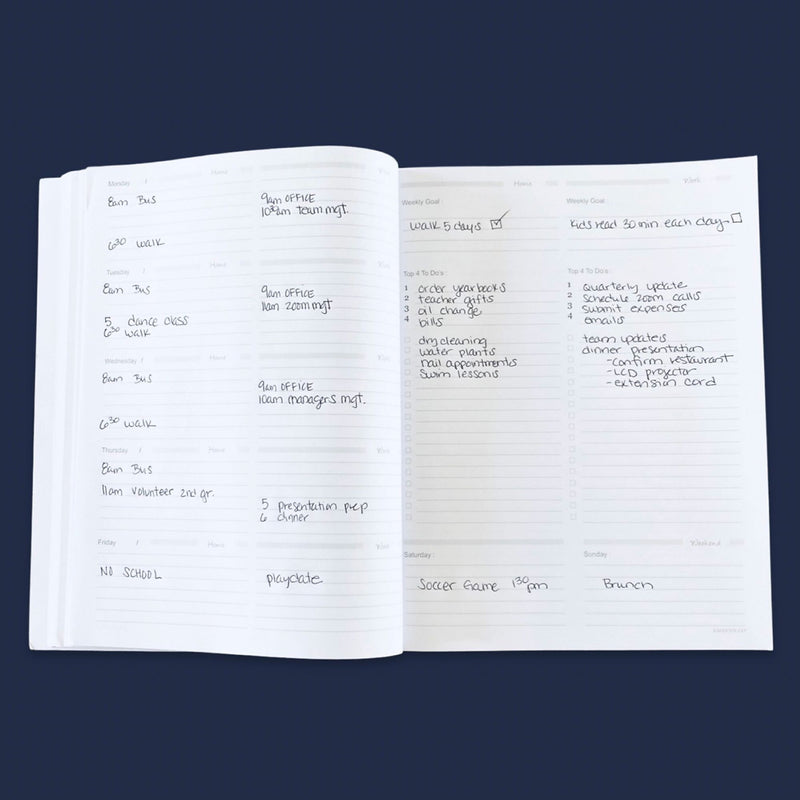 Monday / Home Work
8am Bus
9am OFFICE
10³⁰am team mgt.
6³⁰ walk
Tuesday / Home Work
8am Bus
9am OFFICE
11am zoom mgt
5 dance class
6³⁰ walk
Wednesday / Home Work
8am Bus
9am OFFICE
10am managers mgt.
6³⁰ walk
Thursday / Home Work
8am Bus
11am volunteer 2nd gr.
5 presentation prep
6 dinner
Friday / Home Work
NO SCHOOL
playdate
Home
Weekly Goal :
walk 5 days
Top 4 To Do's :
1 order yearbooks
2 teacher gifts
3 oil change
4 bills
dry cleaning
water plants
nail appointments
swim lessons
Work
Weekly Goal :
Kids read 30 min each day
Top 4 To Do's :
1 Quarterly update
2 Schedule zoom calls
3 Submit expenses
4 emails
team updates
dinner presentation
-confirm restaurant
-LCD projector
-extension cord
Weekend
Saturday :
Soccer Game 1³⁰pm
Sunday :
Brunch